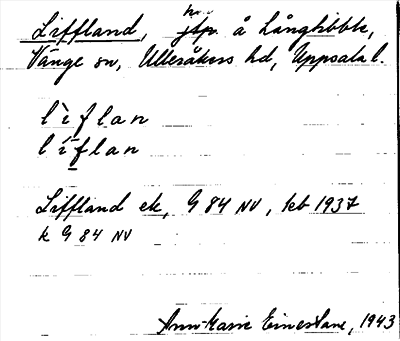 Liffland, hm å Långtibble,
Vänge sn, Ulleråkers hd, Uppsala l.
lìflan
líflan
Liffland ek, G 84 NV, leb 1937
k G 84 NV
Ann-Marie Einerstam, 1943